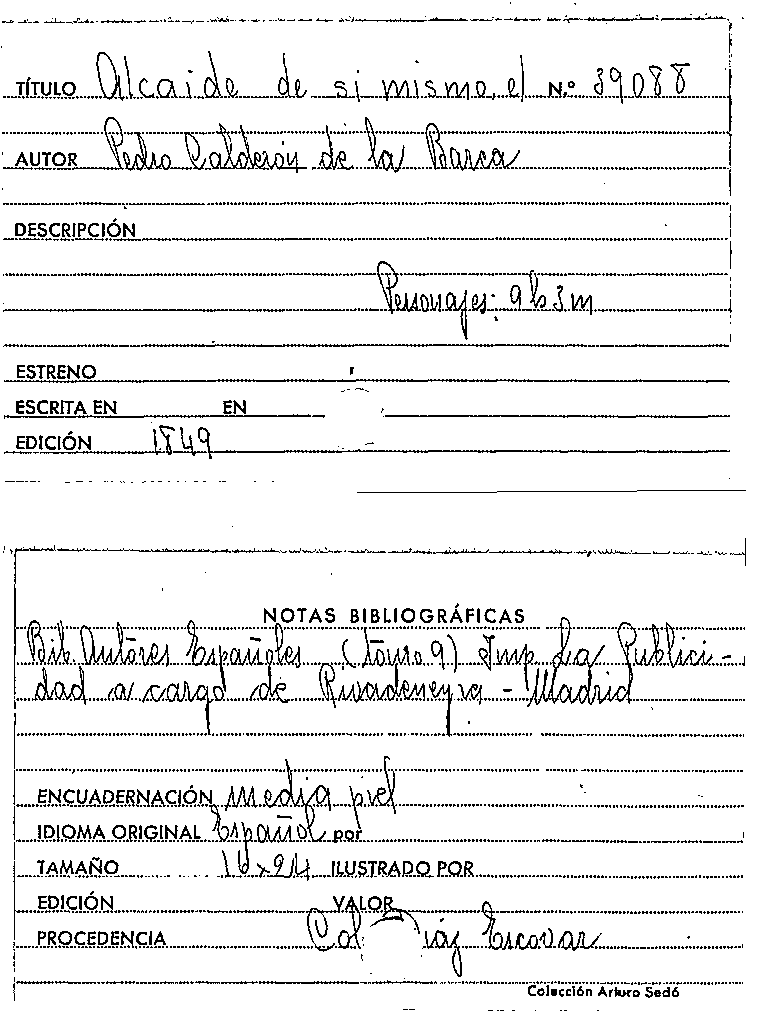 TÍTULO Alcaide de si mismo, el N.º 39088
AUTOR Pedro Calderón de la Barca
DESCRIPCIÓN
Personajes: 9h 3m
ESTRENO
ESCRITA EN EN
EDICIÓN 1849
NOTAS BIBLIOGRÁFICAS
Bib. Autores Españoles (tomo 9) Imp. La Publici-
dad a cargo de Rivadeneyra - Madrid
ENCUADERNACIÓN media piel
IDIOMA ORIGINAL Español por
TAMAÑO ILUSTRADO POR
EDICIÓN VALOR
PROCEDENCIA Col Escovar
Colección Arturo Sedó